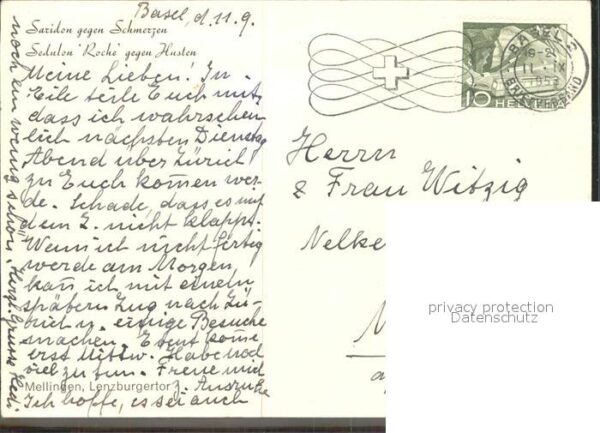 Basel, d. 11. 9.
Saridon gegen Schmerzen
Sedulon 'Roche' gegen Husten
Meine Lieben! In
Eile teile Euch mit,
dass ich wahrschein
lich nächsten Dienstag
Abend über Zürich
zu Euch komen wer-
de. Schade, dass es mit
dem Z. nicht klappt.
Wenn ich nicht fertig
werde am Morgen,
kan ich mit einem
spätern Zug nach Zü-
rich u. einige Besuche
machen. Event. kome
erst Mittw. Habe noch
viel zu tun. Freue mich
Mellingen, Lenzburgertor
z. Ausruhe
Ich hoffe, es sei auch
noch ein wenig schön. Herzl. Grüsse Hedi.
BASEL 2
11. IX.
HELVETIA
10
Herrn
& Frau Witzig
Nelke
privacy protection
Datenschutz